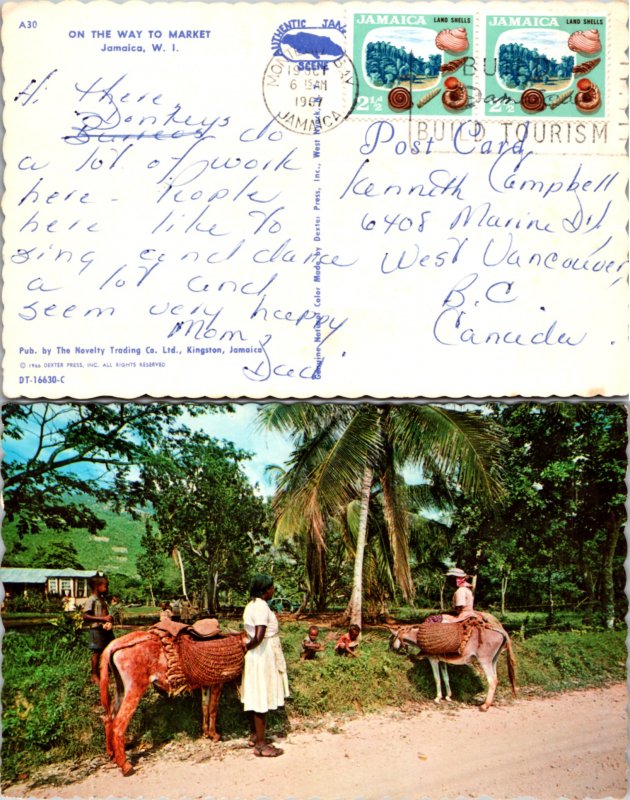 A30
ON THE WAY TO MARKET
Jamaica, W. I.
AUTHENTIC JAMAICA
SCENE
MONTEGO BAY
19 OCT
6 15 AM
1967
JAMAICA
JAMAICA LAND SHELLS
2½
JAMAICA LAND SHELLS
2½
BUILD
Jamaica
BUILD TOURISM
Post Card
Hi there,
Donkeys do
a lot of work
here - People
here like to
sing and dance
a lot and
seem very happy
Mom,
Dad.
Kenneth Campbell
6408 Marine Dr.
West Vancouver,
B.C
Canada.
Genuine Natural Color Made by Dexter Press, Inc., West Nyack,
Pub. by The Novelty Trading Co. Ltd., Kingston, Jamaica
© 1966 DEXTER PRESS, INC. ALL RIGHTS RESERVED
DT-16630-C